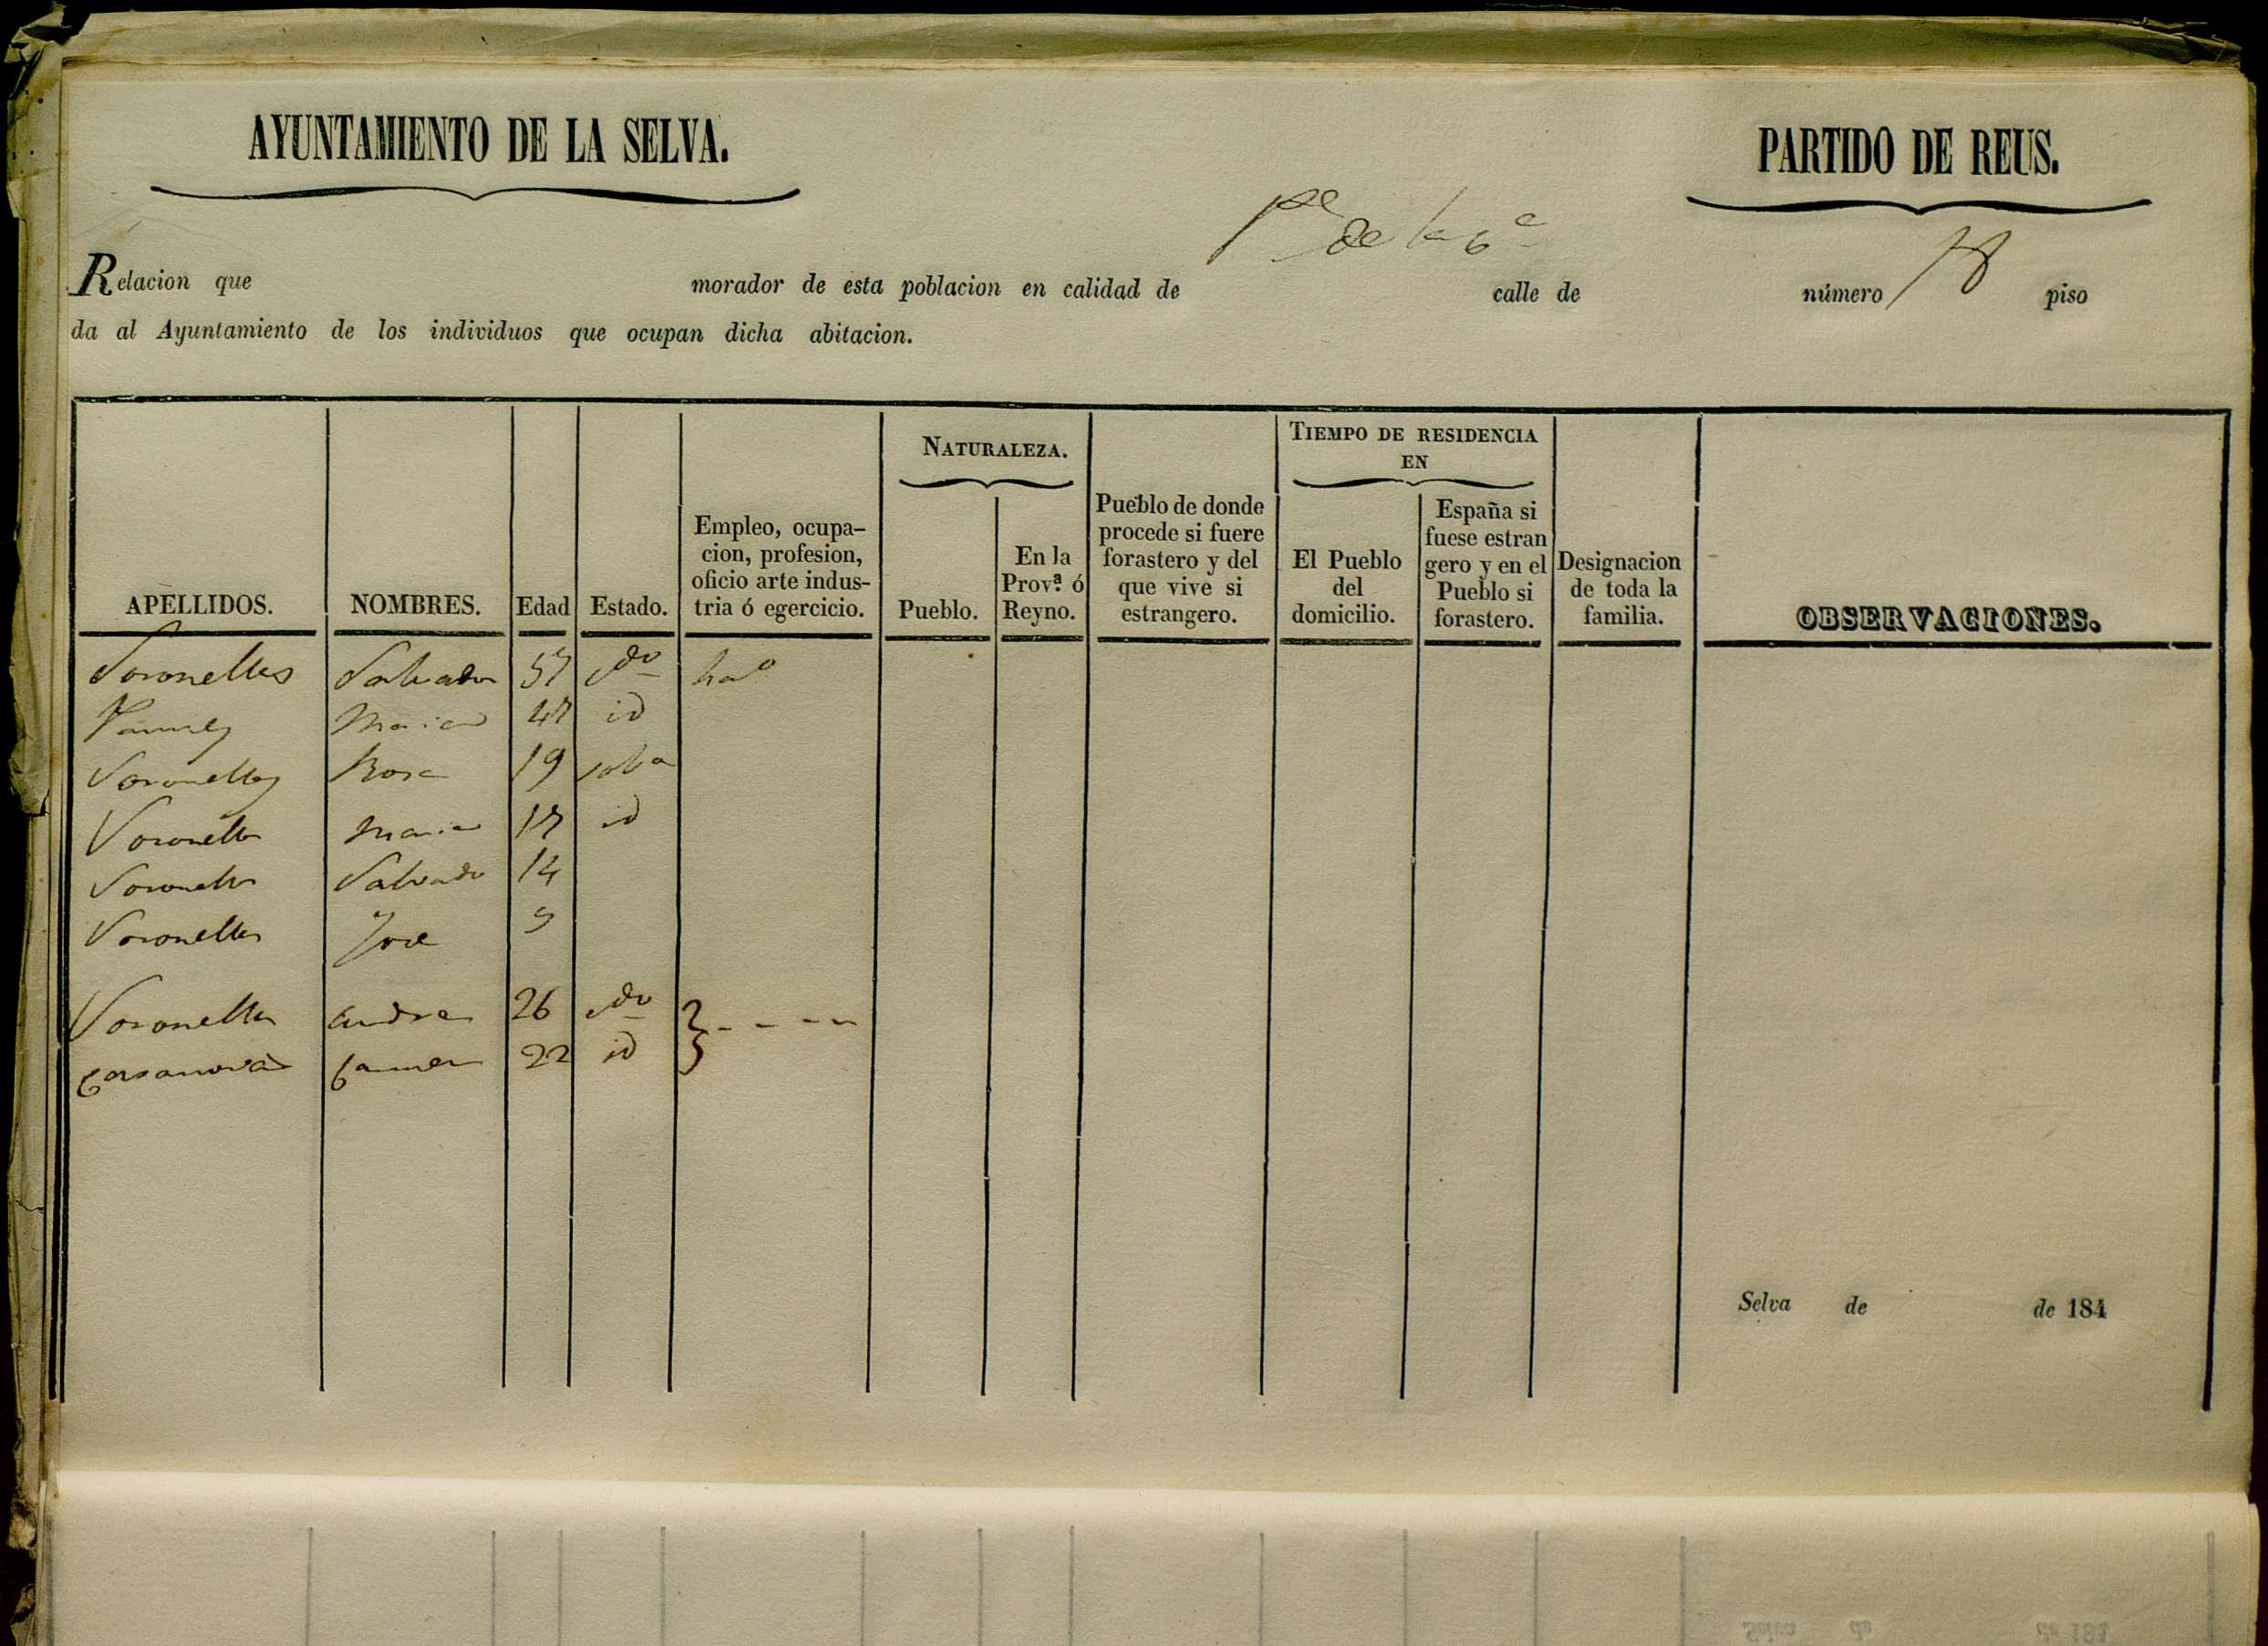 AYUNTAMIENTO DE LA SELVA.
PARTIDO DE REUS.
Relacion que morador de esta poblacion en calidad de calle de número piso
da al Ayuntamiento de los individuos que ocupan dicha abitacion.
APELLIDOS.
NOMBRES.
Edad
Estado.
Empleo, ocupa-
cion, profesion,
oficio arte indus-
tria ó egercicio.
NATURALEZA.
Pueblo.
En la
Prov.ª ó
Reyno.
Pueblo de donde
procede si fuere
forastero y del
que vive si
estrangero.
TIEMPO DE RESIDENCIA
EN
El Pueblo
del
domicilio.
España si
fuese estran
gero y en el
Pueblo si
forastero.
Designacion
de toda la
familia.
OBSERVACIONES.
Voronellas Salvador 57 cdo
Maria 47 id
Voronellas Rosa 19 solta
Voronellas Maria 17 id
Voronellas Salvado 14
Voronellas Jose 9
Voronellas Andres 26 cdo
Casanovas Carmen 22 id
Selva de de 184